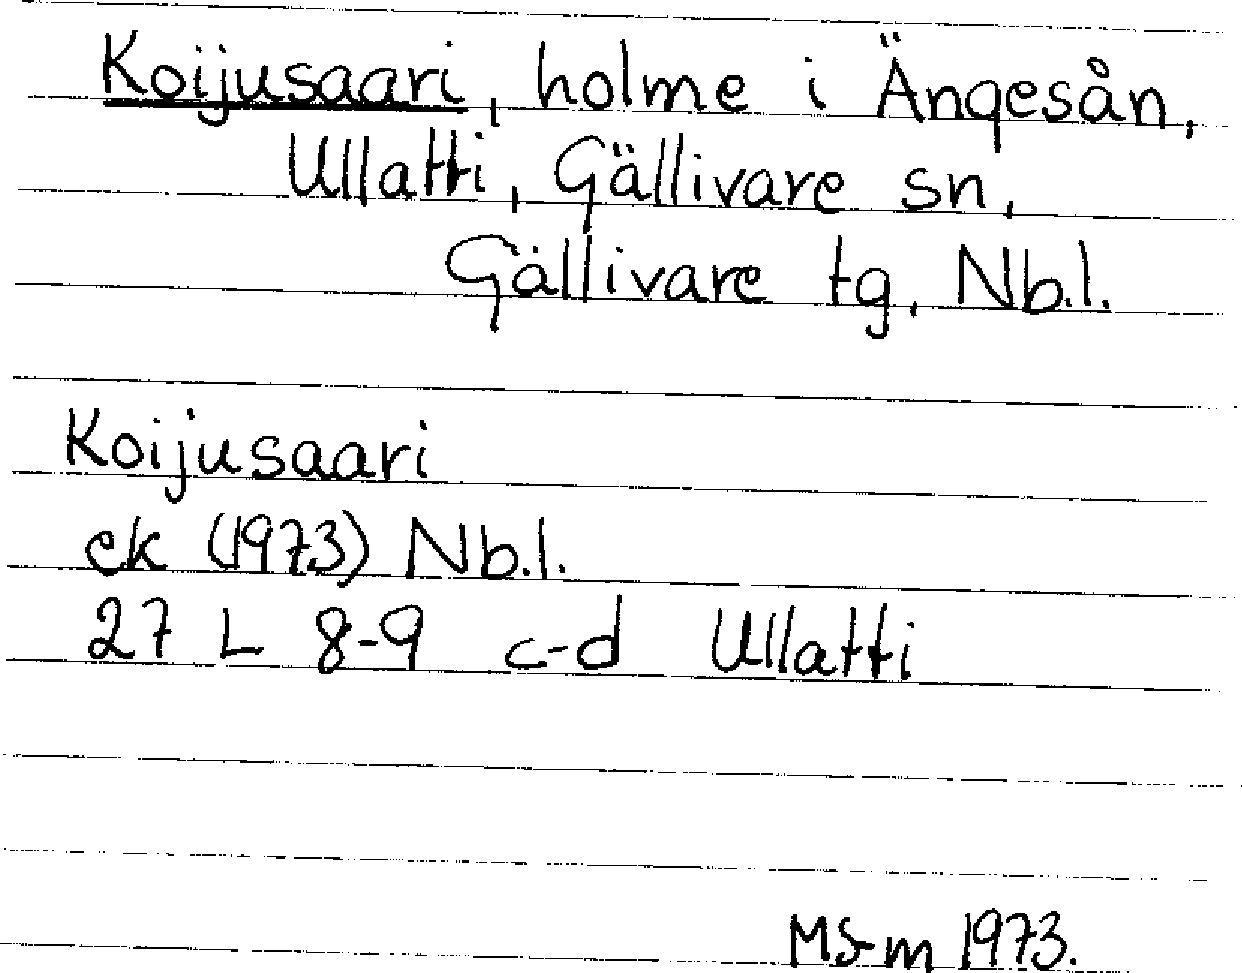 Koijusaari, holme i Ängesån,
Ullatti, Gällivare sn,
Gällivare tg, Nb.l.
Koijusaari
ek (1973) Nb.l.
27 L 8-9 c-d Ullatti
MS-m 1973.